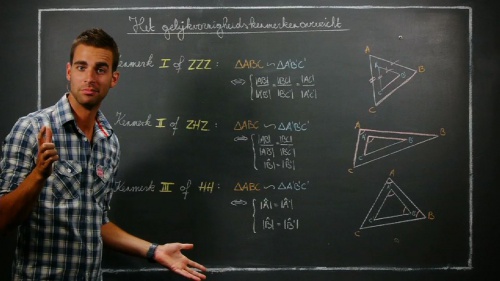 Het gelijkvormigheidskenmerkenoverzicht
Kenmerk I of ZZZ : ΔABC ∽ ΔA'B'C'
⇔ { |AB|/|A'B'| = |BC|/|B'C'| = |AC|/|A'C'|
Kenmerk II of ZHZ : ΔABC ∽ ΔA'B'C'
⇔ { |AB|/|A'B'| = |BC|/|B'C'|
|B̂| = |B̂'|
Kenmerk III of HH : ΔABC ∽ ΔA'B'C'
⇔ { |Â| = |Â'|
|B̂| = |B̂'|
A
B
C
A
B
C
A
B
C